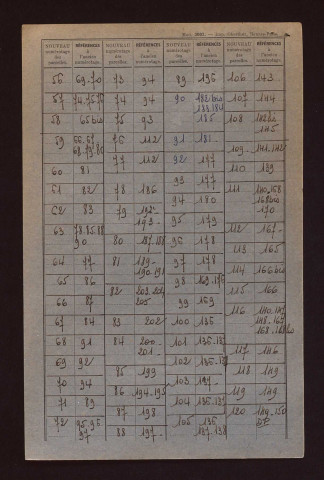 NOUVEAU numérotage des parcelles. RÉFÉRENCES à l'ancien numérotage. NOUVEAU numérotage des parcelles. RÉFÉRENCES à l'ancien numérotage. NOUVEAU numérotage des parcelles. RÉFÉRENCES à l'ancien numérotage. NOUVEAU numérotage des parcelles. RÉFÉRENCES à l'ancien numérotage.
56 69.70
57 74.75.76
58 65 bis
59 66.67
68.79.80
60 81
61 82
62 83
63 78.85.88
90
64 77
65 86
66 87
67 84
68 91
69 92
70 94
71 89
72 95.96
97
73 94
74 94
75 93
76 112
77 112
78 186
79 192
193
80 187.188
81 189
190.191
82 203.204
205
83 202
84 200
201
85 199
86 194.195
87 198
88 197
89 196
90 182 bis
183.184
185
91 181
92 177
93 177
94 180
95 179
96 178
97 178
98
99 169
100 135
101
102
103 197
104
105 136
137.138
106 143
107 144
108
145
109
110 139
111
168 bis
170
112 167
113 165
114 166 bis
115 166
116
117 146
118 149
119 149
120 149.150